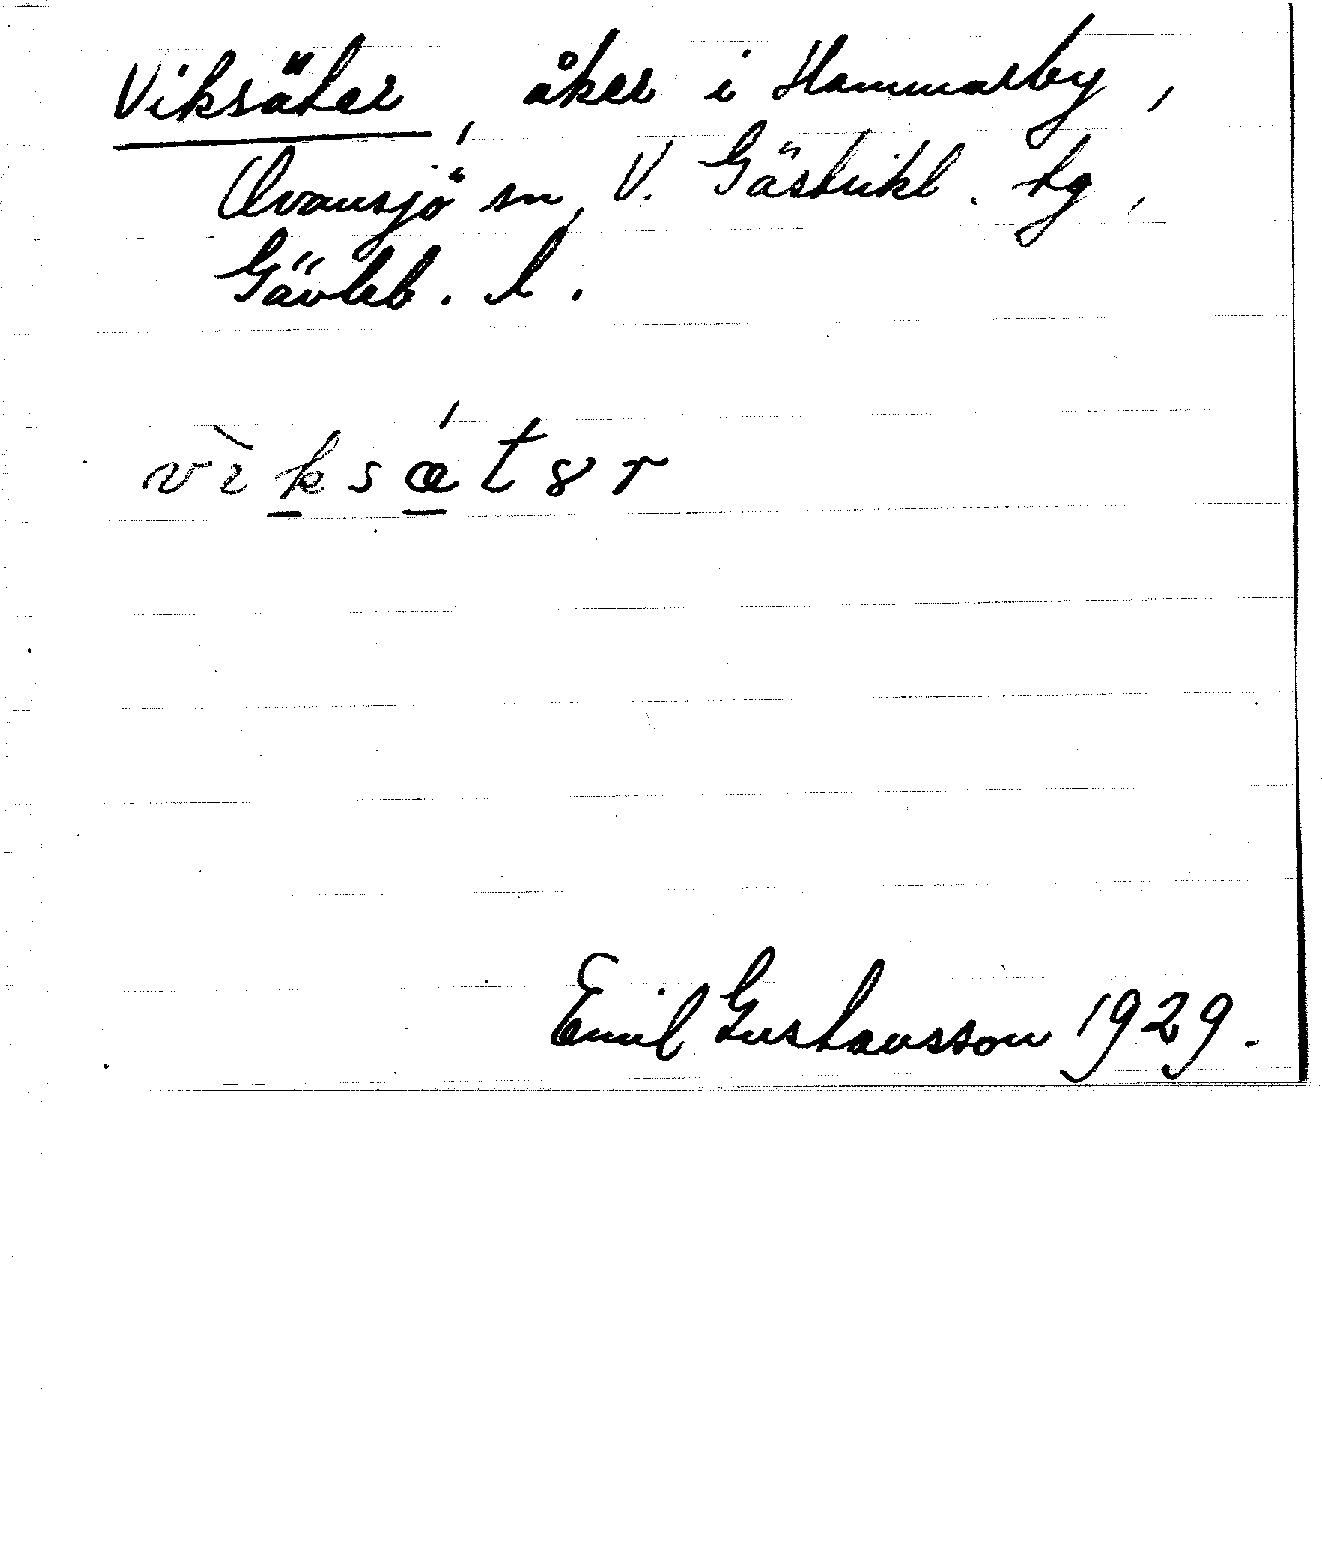 Viksäter, åker i Hammarby,
Ovansjö sn, V. Gästrikl. tg,
Gävleb. l.
vìksǽtər
Emil Gustavsson 1929.